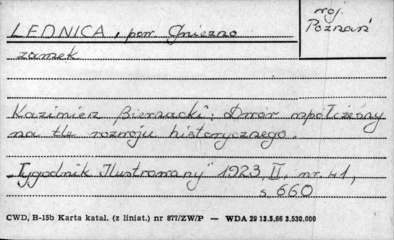 LEDNICA, pow. Gniezno
woj. Poznań
zamek
Kazimierz Biernacki: Dwór współczesny
na tle rozwoju historycznego.
„Tygodnik Ilustrowany" 1923, II, nr. 41,
s. 660
CWD, B-15b Karta katal. (z liniat.) nr 877/ZW/P — WDA 29 13.5.66 3.530.000